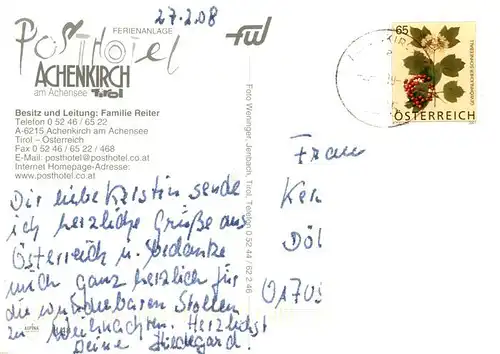 27.2.08
FERIENANLAGE
POSTHOTEL
ACHENKIRCH
am Achensee Tirol
Besitz und Leitung: Familie Reiter
Telefon 0 52 46 / 65 22
A-6215 Achenkirch am Achensee
Tirol – Österreich
Fax 0 52 46 / 65 22 / 468
E-Mail: posthotel@posthotel.co.at
Internet Homepage-Adresse:
www.posthotel.co.at
Dir liebe Kerstin sende
ich herzliche Grüße aus
Österreich u. bedanke
mich ganz herzlich für
die wunderbaren Stollen
zu Weihnachten. Herzlichst
Deine Hildegard.
fwj
Foto Werunger, Jenbach, Tirol, Telefon 0 52 44 / 62 2 46
65
GEWÖHNLICHER SCHNEEBALL
ÖSTERREICH
Frau
Ker
Döl
01705